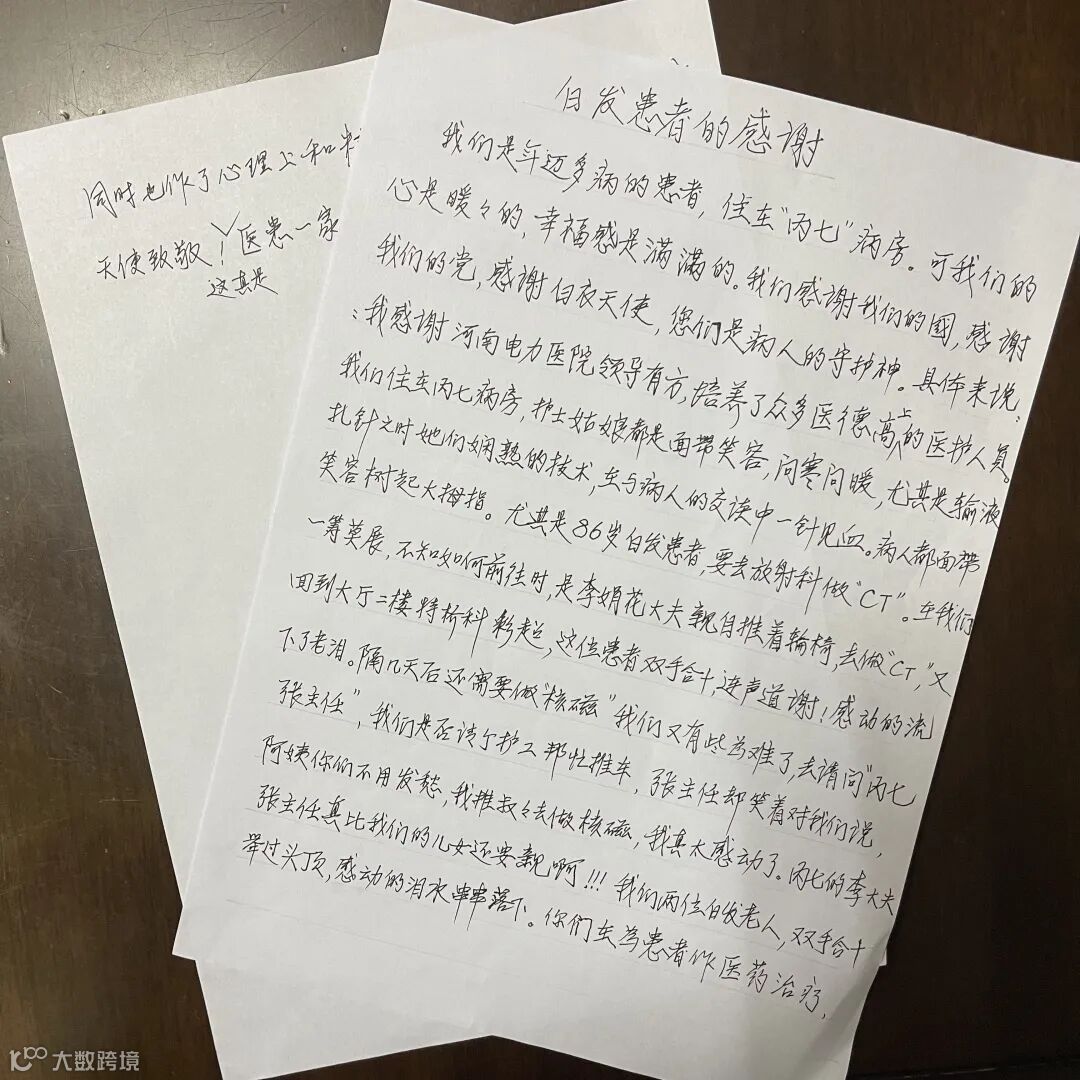 白发患者的感谢
我们是年迈多病的患者，住在“丙七”病房。可我们的
心是暖々的，幸福感是满满的。我们感谢我们的國，感谢
我们的党，感谢白衣天使，您们是病人的守护神。具体来说
：我感谢河南电力医院领导有方，培养了众多医德高尚的医护人员。
我们住在丙七病房，护士姑娘都是面带笑容，问寒问暖，尤其是输液
扎针之时她们娴熟的技术，在与病人的交谈中一针见血。病人都面带
笑容树起大拇指。尤其是86岁白发患者，要去放射科做“CT”。在我们
一筹莫展，不知如何前往时，是李娟花大夫亲自推着轮椅，去做“CT”，又
回到大厅二楼特检科彩超，这位患者双手合十，连声道谢！感动的流
下了老泪。隔几天后还需要做“核磁”我们又有些為难了，去请问“丙七
张主任”，我们是否请个护工帮忙推车，张主任却笑着对我们说，
阿姨你们不用发愁，我推叔々去做核磁，我真太感动了。丙七的李大夫
张主任真比我们的儿女还要亲啊!!!我们两位白发老人，双手合十
举过头顶，感动的泪水串串落下。你们在為患者作医药治疗，
同时也作了心理上和
天使致敬！医患一家
这真是
大数跨境